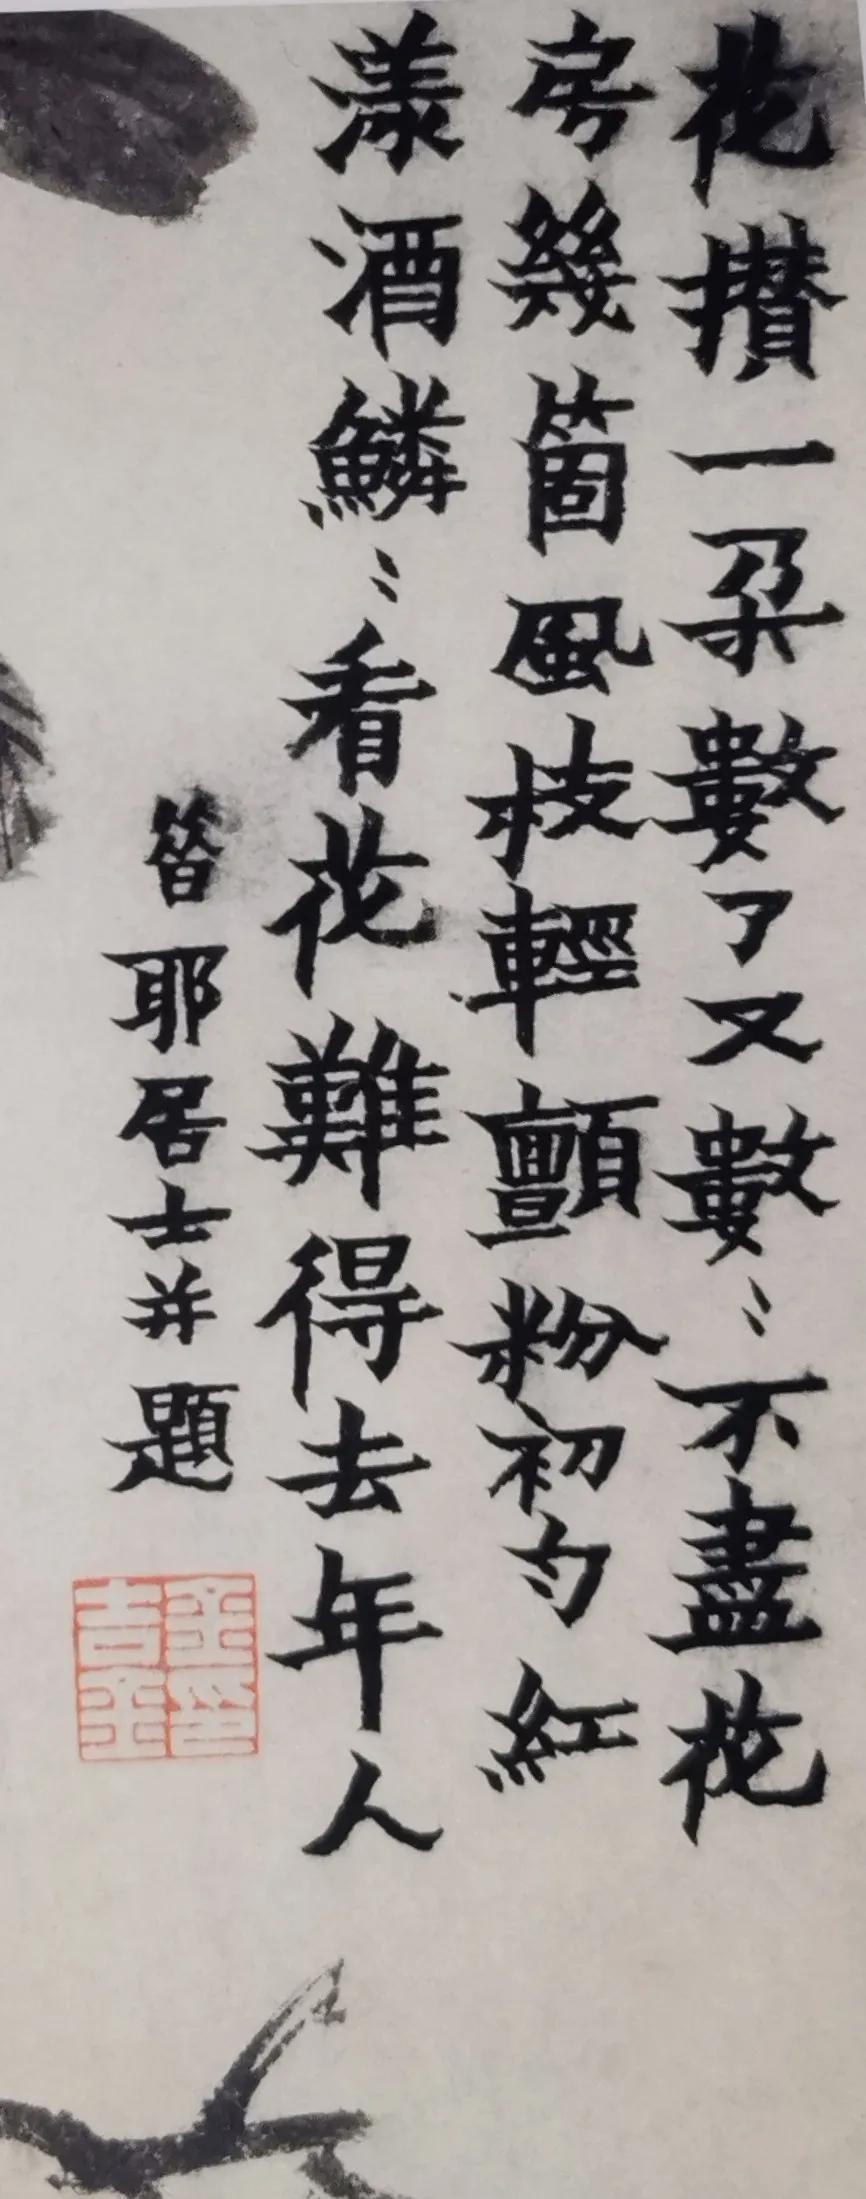 花攅一朶數了又數〻不盡花
房幾箇風枝輕顫粉初勻紅
漾酒鱗〻看花難得去年人
昝耶居士并題